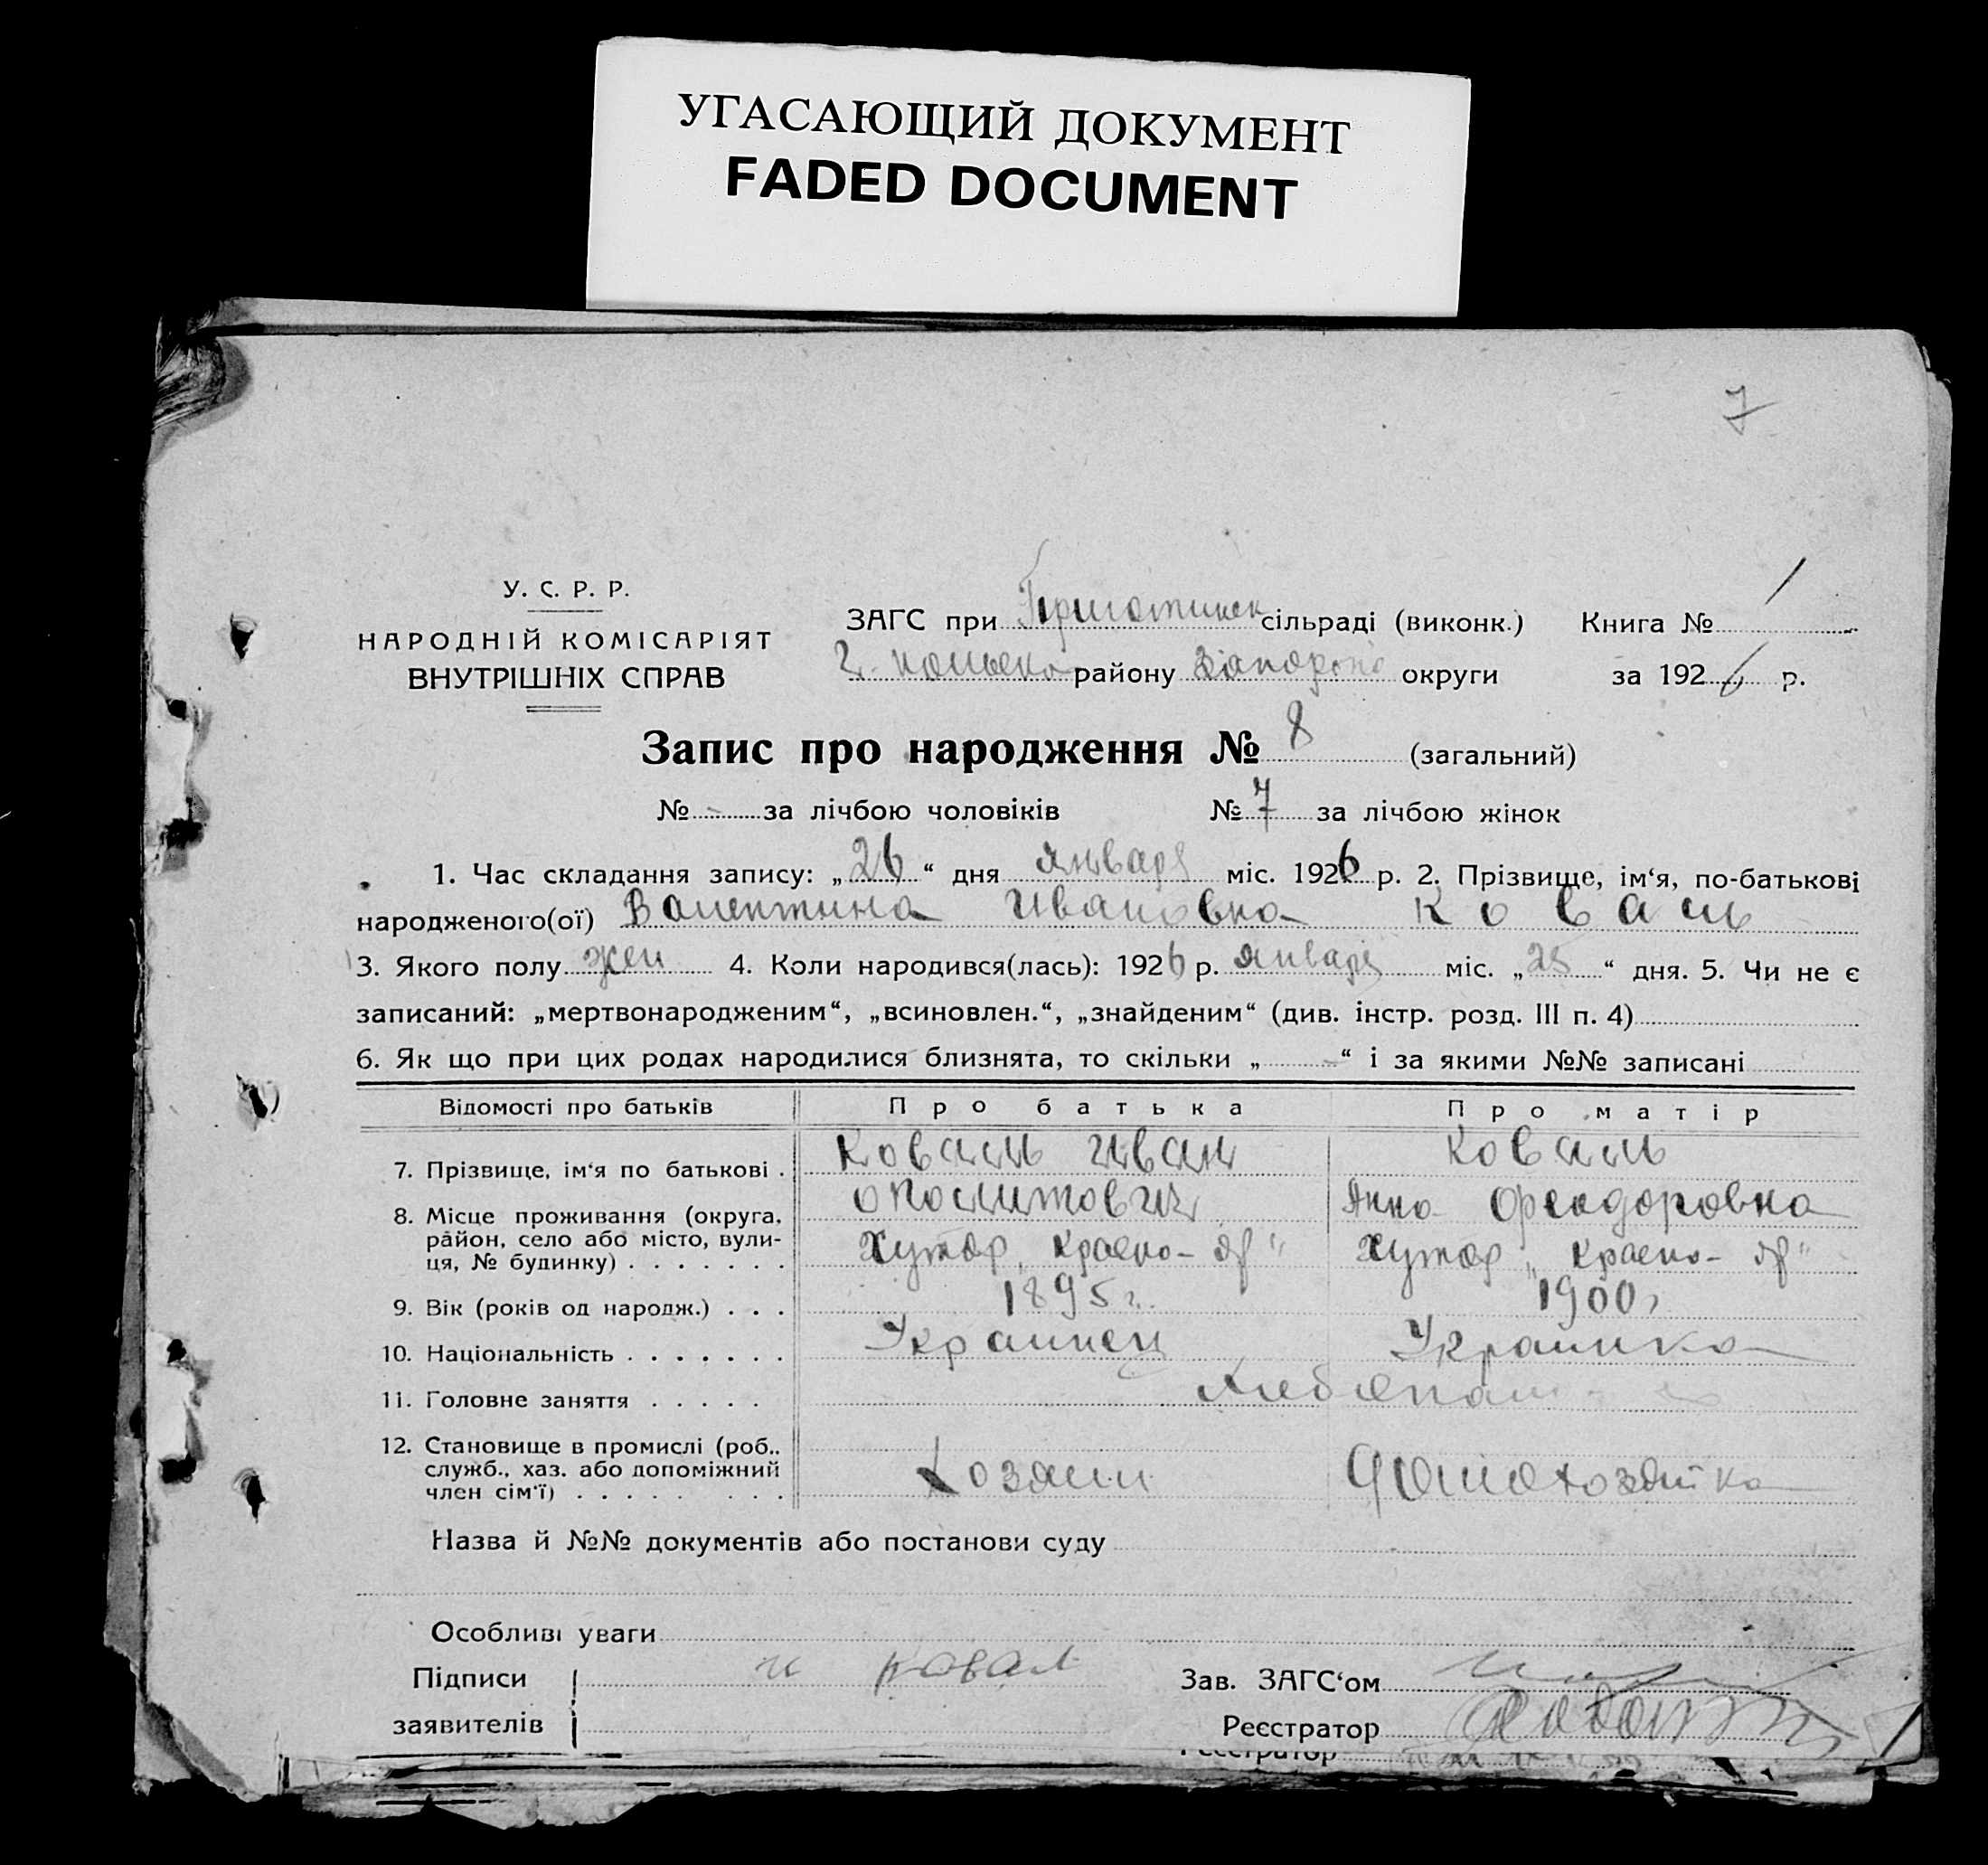 УГАСАЮЩИЙ ДОКУМЕНТ
FADED DOCUMENT
7
У. С. Р. Р.
НАРОДНІЙ КОМІСАРІЯТ
ВНУТРІШНІХ СПРАВ
ЗАГС при сільраді (виконк.) Книга № 1
району округи за 1926 р.
Запис про народження № 8 (загальний)
№ - за лічбою чоловіків № 7 за лічбою жінок
1. Час складання запису: „26“ дня января міс. 1926 р. 2. Прізвище, ім‘я, по-батькові
народженого(ої) Валентина Ивановна Коваль
3. Якого полу жен 4. Коли народився(лась): 1926 р. января міс. „25“ дня. 5. Чи не є
записаний: „мертвонародженим“, „всиновлен.“, „знайденим“ (див. інстр. розд. III п. 4)
6. Як що при цих родах народилися близнята, то скільки „ - “ і за якими №№ записані
Відомості про батьків Про батька Про матір
7. Прізвище, ім‘я по батькові . Коваль Иван Коваль
ополитович Анна Феодоровна
8. Місце проживання (округа, район, село або місто, вулиця, № будинку) . . . . . . . Хутор „Красно-Яр“ Хутор „Красно-Яр“
9. Вік (років од народж.) . . . 1895 г. 1900 г
10. Національність . . . . . . . Украинец Украинка
11. Головне заняття . . . . .
12. Становище в промислі (роб., служб., хаз. або допоміжний член сім‘ї) . . . . . . . . . Хозяин Домохозяйка
Назва й №№ документів або постанови суду
Особливі уваги
Підписи и Ковал Зав. ЗАГС‘ом
заявителів Реєстратор
Реєстратор